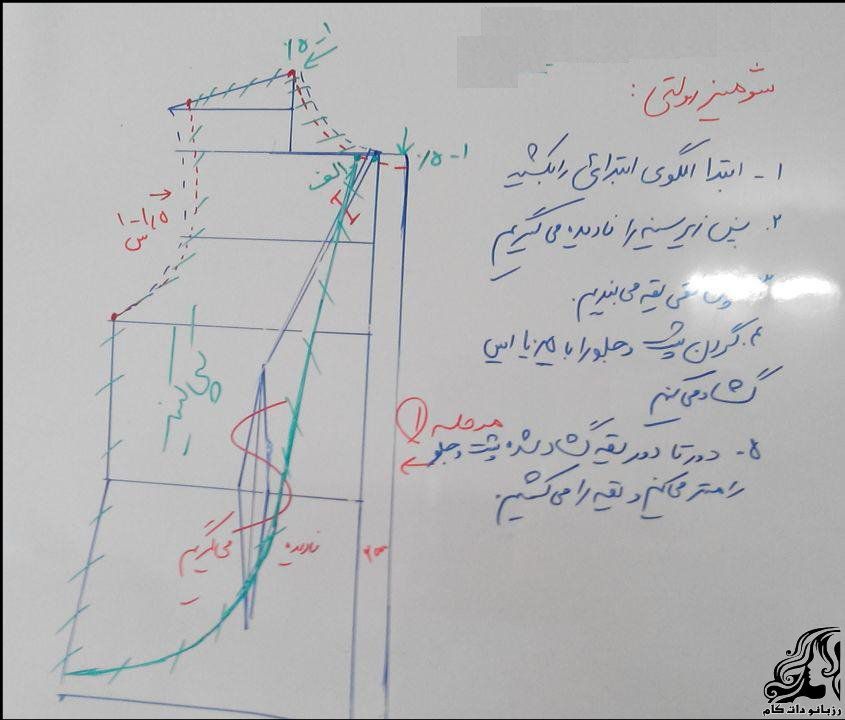 شومیز رولتی :
۱- ابتدا الگوی ابتدائی را بکشید
۲. پنس زیر سینه را نادیده می گیریم
یقه می بندیم.
۴. گردن پشت و جلو را با میزیا اس
گشاد می کنیم
۵- دور تا دور یقه گشاد شده پشت و جلو
را متر می کنیم و یقه را می کشیم.
مرحله ۱
۱ - ۰/۵
۱ - ۰/۵
الف
۱-۱/۵
س
نادیده
می گیریم
رزبانو دات کام